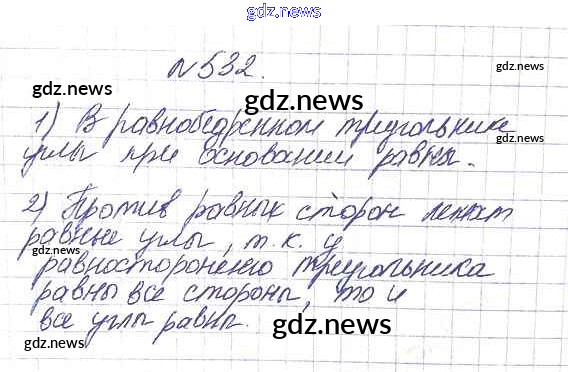 gdz.ru
№532.
gdz.ru
gdz.ru
gdz.ru
1) В равнобедренном треугольнике
углы при основании равны.
gdz.ru
gdz.ru
2) Против равных сторон лежат
равные углы, т.к. у
равностороненго треугольника
равны все стороны, то и
все углы равны.
gdz.ru
gdz.ru
gdz.ru
gdz.ru